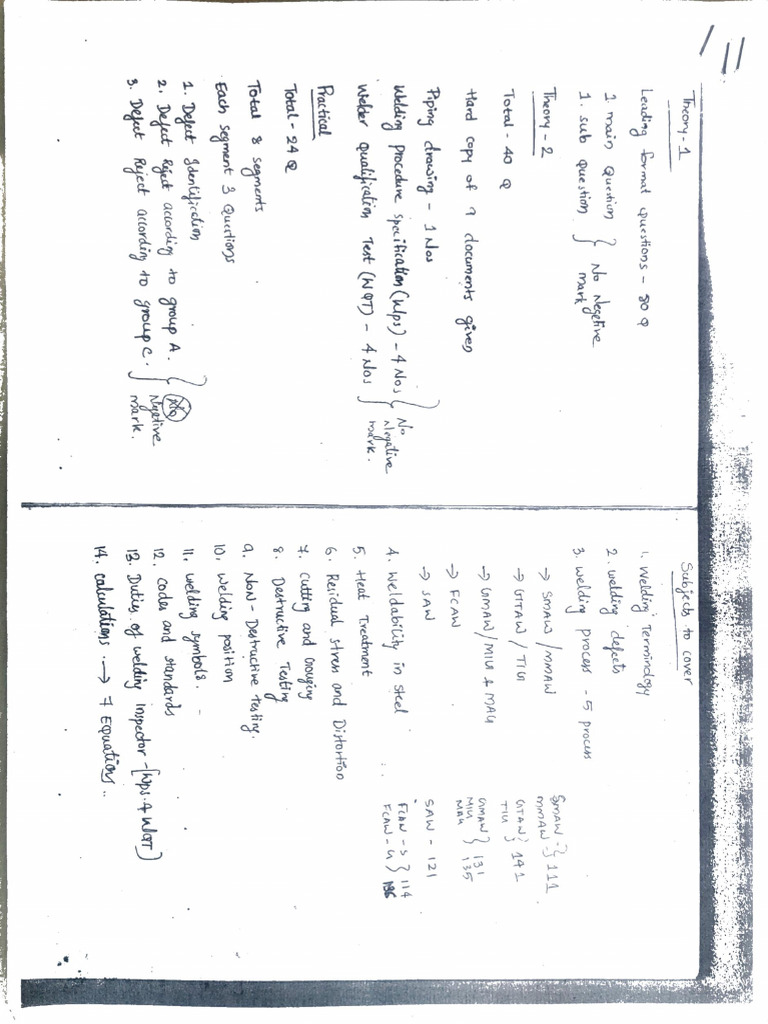 Theory-1
Leading format questions - 80 Q
1 main Question
1. sub Question } No Negetive mark
Theory - 2
Total - 40 Q
Hard copy of 9 documents given
Piping drawing - 1 Nos
Welding Procedure specification (Wps) - 4 Nos
Welder Qualification Test (WQT) - 4 Nos } No Negative mark.
Practical
Total - 24 Q
Total 8 segments
Each segment 3 Questions
1. Defect Identification
2. Defect Reject according to group A.
3. Defect Reject according to group C. } No Negetive mark.
Subjects to cover
1. Welding Terminology
2. welding defects
3. welding process - 5 process
→ SMAW/MMAW
→ GTAW / TIG
→ GMAW/MIG & MAG
→ FCAW
→ SAW
SMAW -
MMAW - } 111
GTAW
TIG } 141
GMAW
MIG } 131
MAG 135
SAW - 121
FCAW - S } 114
FCAW - G 136
4. Weldability in steel
5. Heat Treatment
6. Residual stress and Distortion
7. Cutting and Gouging
8. Destructive Testing
9. Non - Destructive Testing.
10. Welding position
11. welding symbols.
12. codes and standards
13. Duties of welding Inspector - [Wps & WQT]
14. Calculations. → 7 Equations..